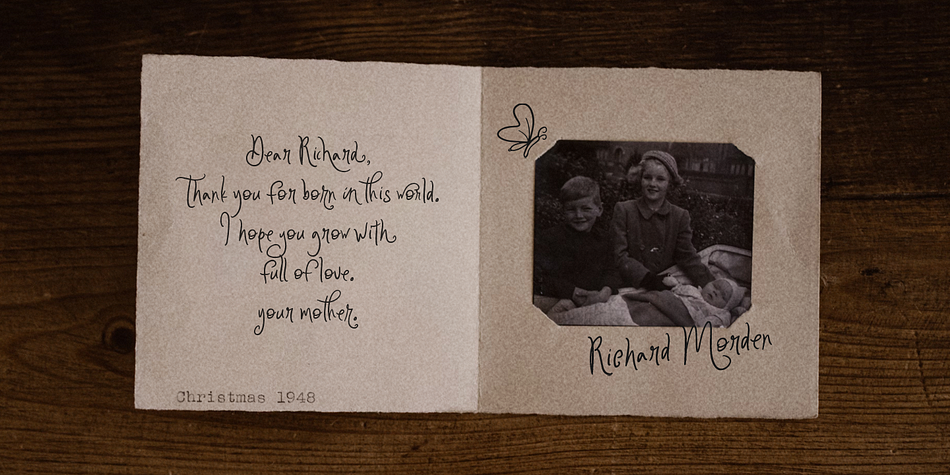 Dear Richard,
Thank you for born in this world.
I hope you grow with
full of love.
your mother.
Christmas 1948
Richard Morden